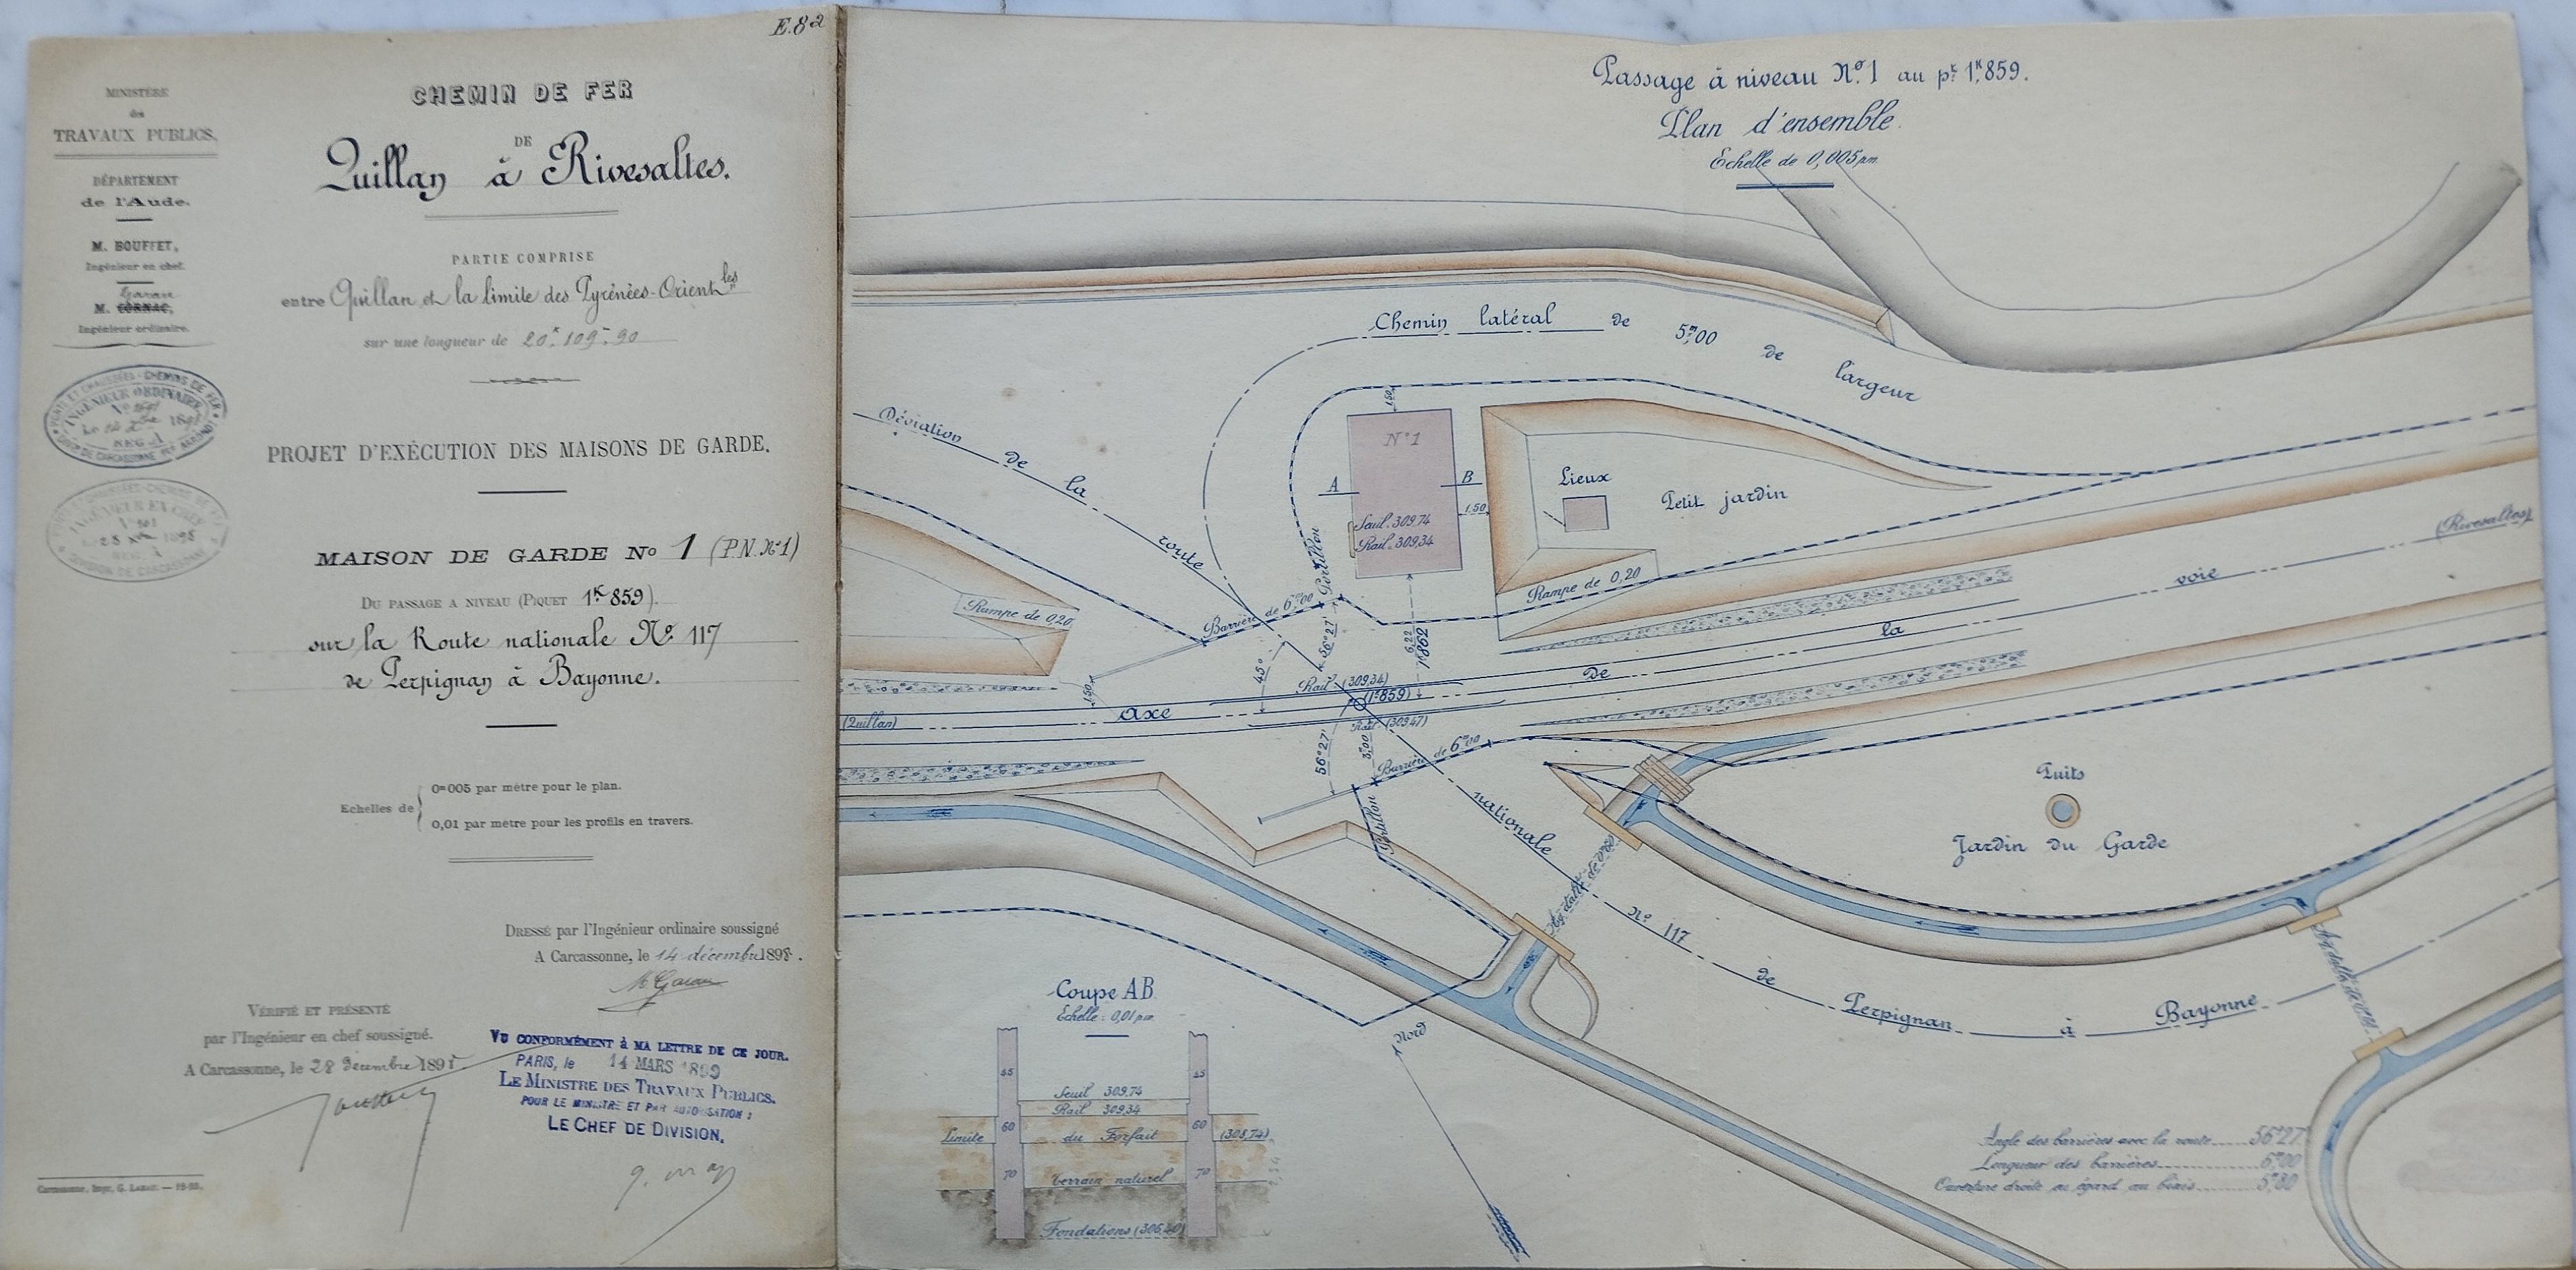 E.8a
MINISTÈRE
des
TRAVAUX PUBLICS.
DÉPARTEMENT
de l'Aude.
M. BOUFFET,
Ingénieur en chef.
Garau
M. CORNAC,
Ingénieur ordinaire.
PONTS ET CHAUSSÉES - CHEMINS DE FER
INGÉNIEUR ORDINAIRE
REG. A
INGÉNIEUR EN CHEF
DIVISION DE CARCASSONNE
CHEMIN DE FER
DE
Quillan à Rivesaltes.
PARTIE COMPRISE
entre Quillan et la limite des Pyrénées-Orientles
sur une longueur de 20k 109m 90
PROJET D'EXÉCUTION DES MAISONS DE GARDE.
MAISON DE GARDE No 1 (P.N. No 1)
DU PASSAGE A NIVEAU (PIQUET 1K 859).
sur la Route nationale No 117
de Perpignan à Bayonne.
Echelles de
0m005 par mètre pour le plan.
0,01 par mètre pour les profils en travers.
DRESSÉ par l'Ingénieur ordinaire soussigné
A Carcassonne, le 14 décembre 1898.
VÉRIFIÉ ET PRÉSENTÉ
par l'Ingénieur en chef soussigné.
A Carcassonne, le 28 décembre 1898
VU CONFORMÉMENT à MA LETTRE DE CE JOUR.
PARIS, le 14 MARS 1899
LE MINISTRE DES TRAVAUX PUBLICS.
POUR LE MINISTRE ET PAR AUTORISATION :
LE CHEF DE DIVISION,
Carcassonne, Impr. G. LABAU.
Passage à niveau No 1 au pt 1K859.
Plan d'ensemble.
Echelle de 0,005 p.m.
Chemin latéral de 5m00 de largeur
Déviation de la route
nationale No 117 de Perpignan à Bayonne
1.50
No 1
A
B
1.50
Seuil. 309.74
Rail. 309,34
Lieux
Petit jardin
Rampe de 0,20
Rampe de 0,20
Portillon
Barrière de 6m00
56°27'
45°
6,22
1K862
1,50
Rail (309,34)
(1K859)
Rail (309,47)
(Quillan)
axe de la voie
(Rivesaltes)
56°27'
3,00
Barrière de 6m00
Portillon
Puits
Jardin du Garde
Nord
Coupe AB
Echelle : 0,01 p.m.
45
45
Seuil 309,74
Rail 309,34
60
60
Limite du Forfait (308,74)
70
70
terrain naturel
Fondations (306,40)
Angle des barrières avec la route 56°27'
Longueur des barrières 6m00
Ouverture droite eu égard au biais 5m00